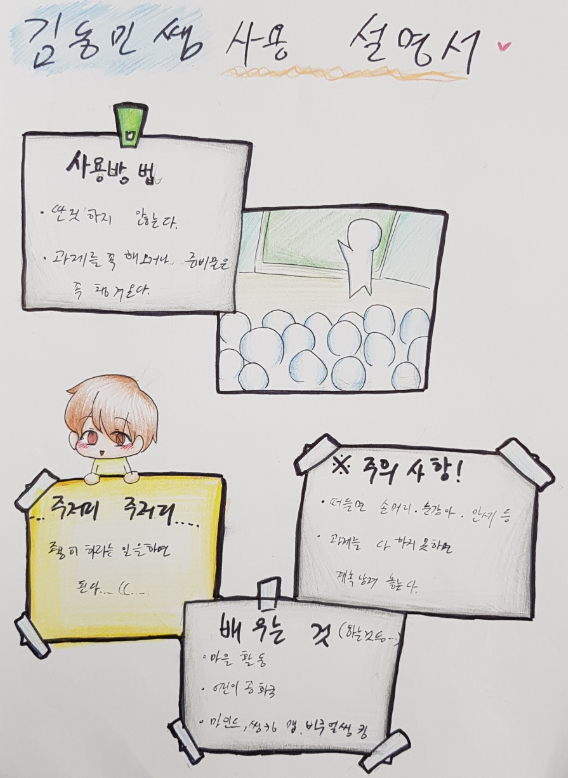 김동민 쌤 사용 설명서
사용방법
· 딴짓 하지 않는다.
· 과제를 꼭 해오거나, 준비물은
꼭 챙겨온다.
... 주저리 주저리....
조용히 하라는 일을하면
된다...((...
※ 주의 사항!
· 떠들면 손머리.
· 과제를 다 하지 못하면
계속남겨 놓는다.
배우는 것 (하는것도...)
· 마을 활동
· 어린이 공화국
· 마인드, 씽킹 맵, 비주얼씽킹